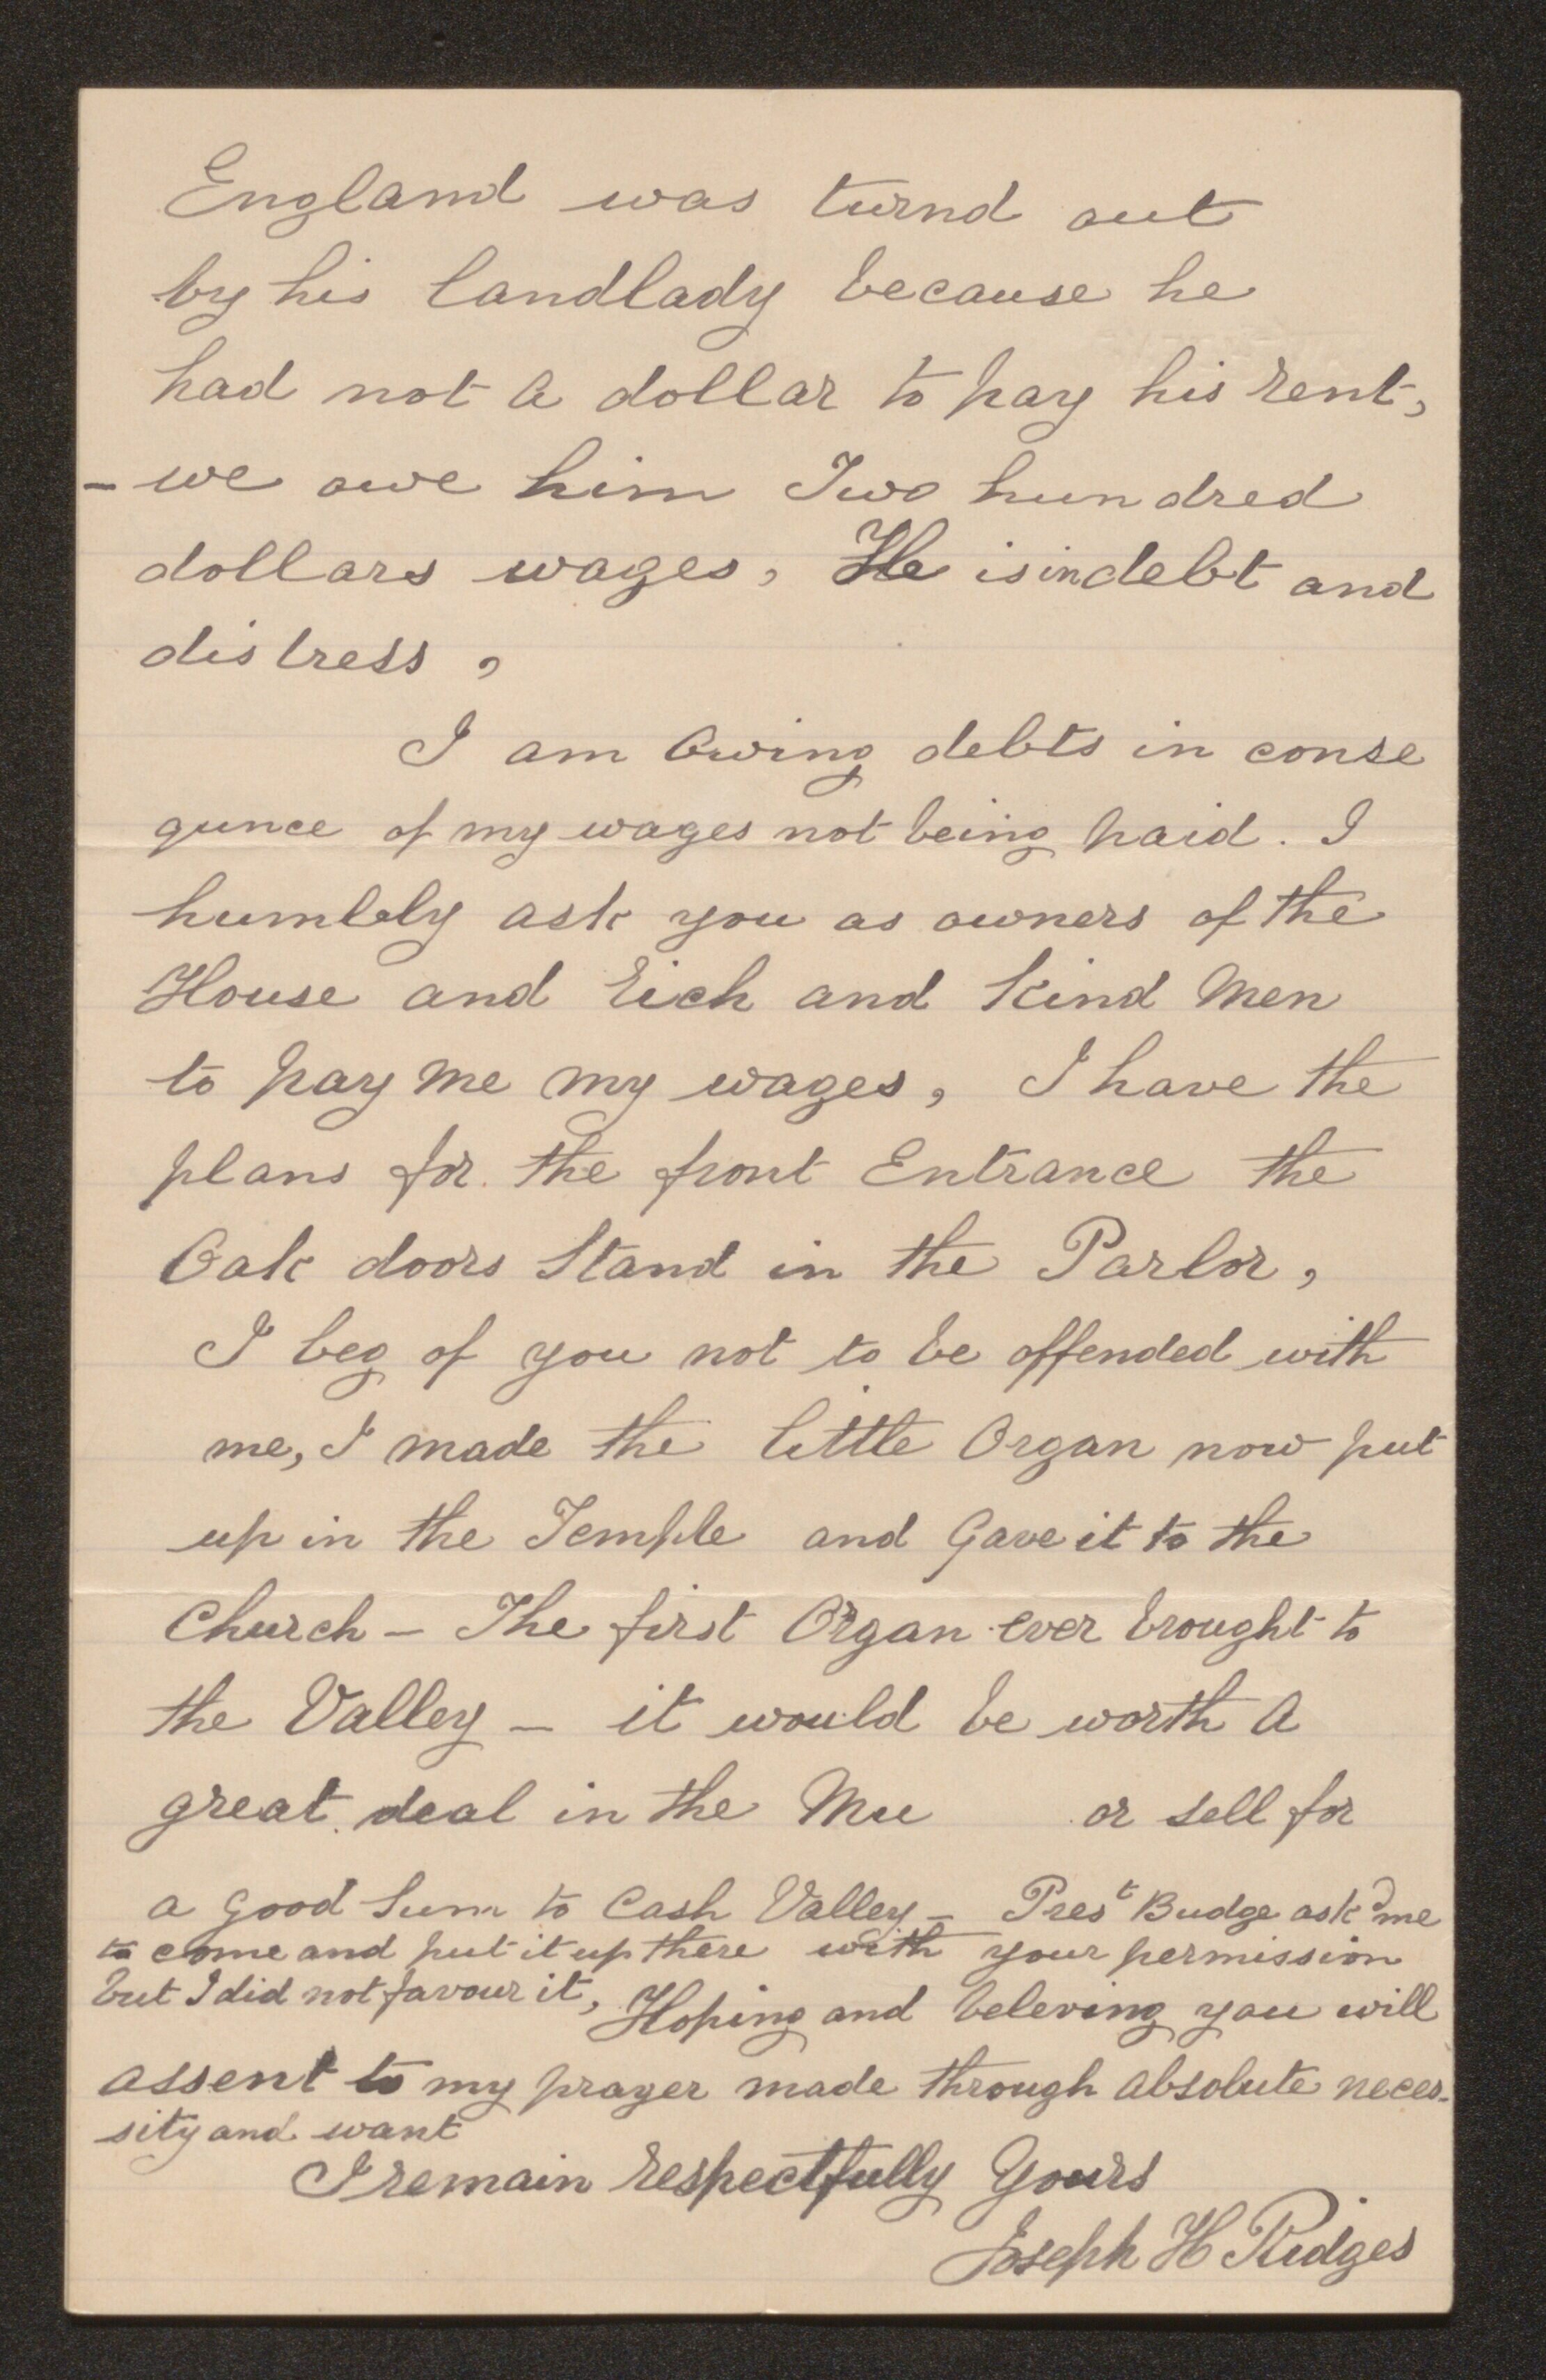 England was turnd out
by his landlady because he
had not a dollar to pay his rent,
- we owe him Two hundred
dollars wages, He is in debt and
distress,
I am Owing debts in conse
qunce of my wages not being paid. I
humbly ask you as owners of the
House and Rich and Kind Men
to pay me my wages, I have the
plans for the front Entrance the
Oak doors Stand in the Parlor,
I beg of you not to be offended with
me, I made the little Organ now put
up in the Temple and Gave it to the
Church - The first Organ ever brought to
the Valley - it would be worth A
great deal in the Mu or sell for
a Good Sum to Cash Valley - Prest Budge ask'd me
to come and put it up there with your permission
but I did not favour it, Hoping and beleving you will
assent to my prayer made through absolute neces-
sity and want
I remain respectfully Yours
Joseph H Ridges